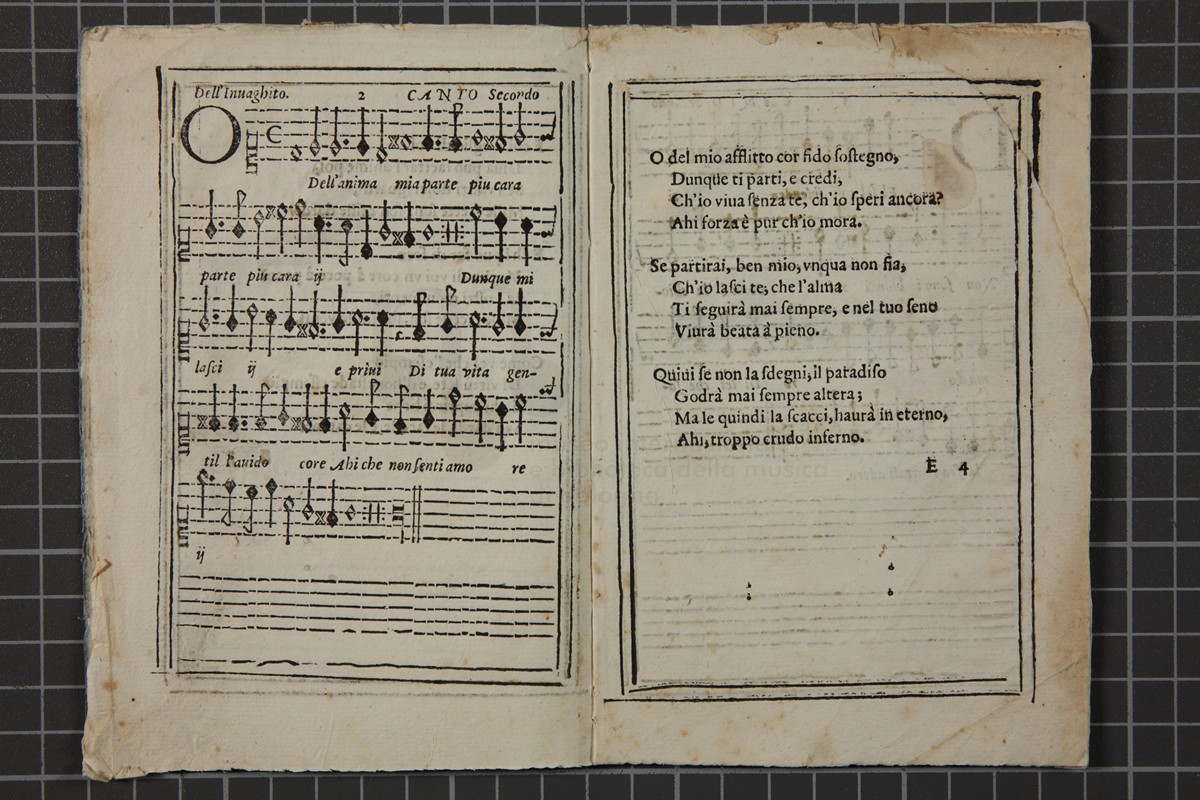 Dell'Inuaghito. 2 CANTO Secondo
O
Dell'anima mia parte piu cara
parte piu cara ij Dunque mi
lasci ij e priui Di tua vita gen-
til l'auido core Ahi che non senti amo re
ij
O del mio afflitto cor fido ſoſtegno,
Dunque ti parti, e credi,
Ch'io viua ſenza te, ch'io ſperi ancora?
Ahi forza è pur ch'io mora.
Se partirai, ben mio, vnqua non fia,
Ch'io laſci te, che l'alma
Ti ſeguirà mai ſempre, e nel tuo ſeno
Viurà beata à pieno.
Quiui ſe non la ſdegni, il paradiſo
Godrà mai ſempre altera;
Ma le quindi la ſcacci, haurà in eterno,
Ahi, troppo crudo inferno.
E 4
della musica